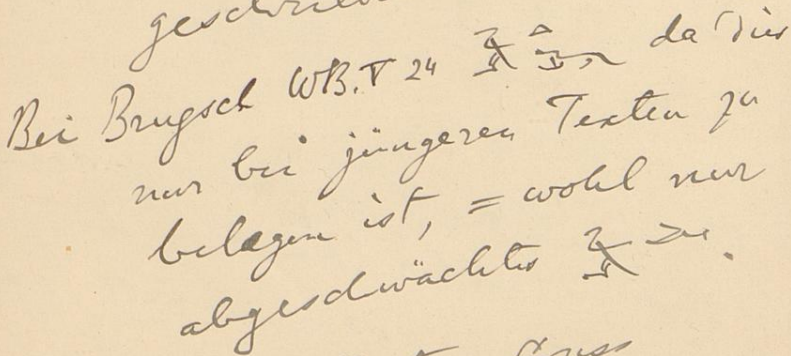 geschrieben
Bei Brugsch WB. V 24 da dies
nur bei jüngeren Texten zu
belegen ist, = wohl nur
abgeschwächtes .
Gruss